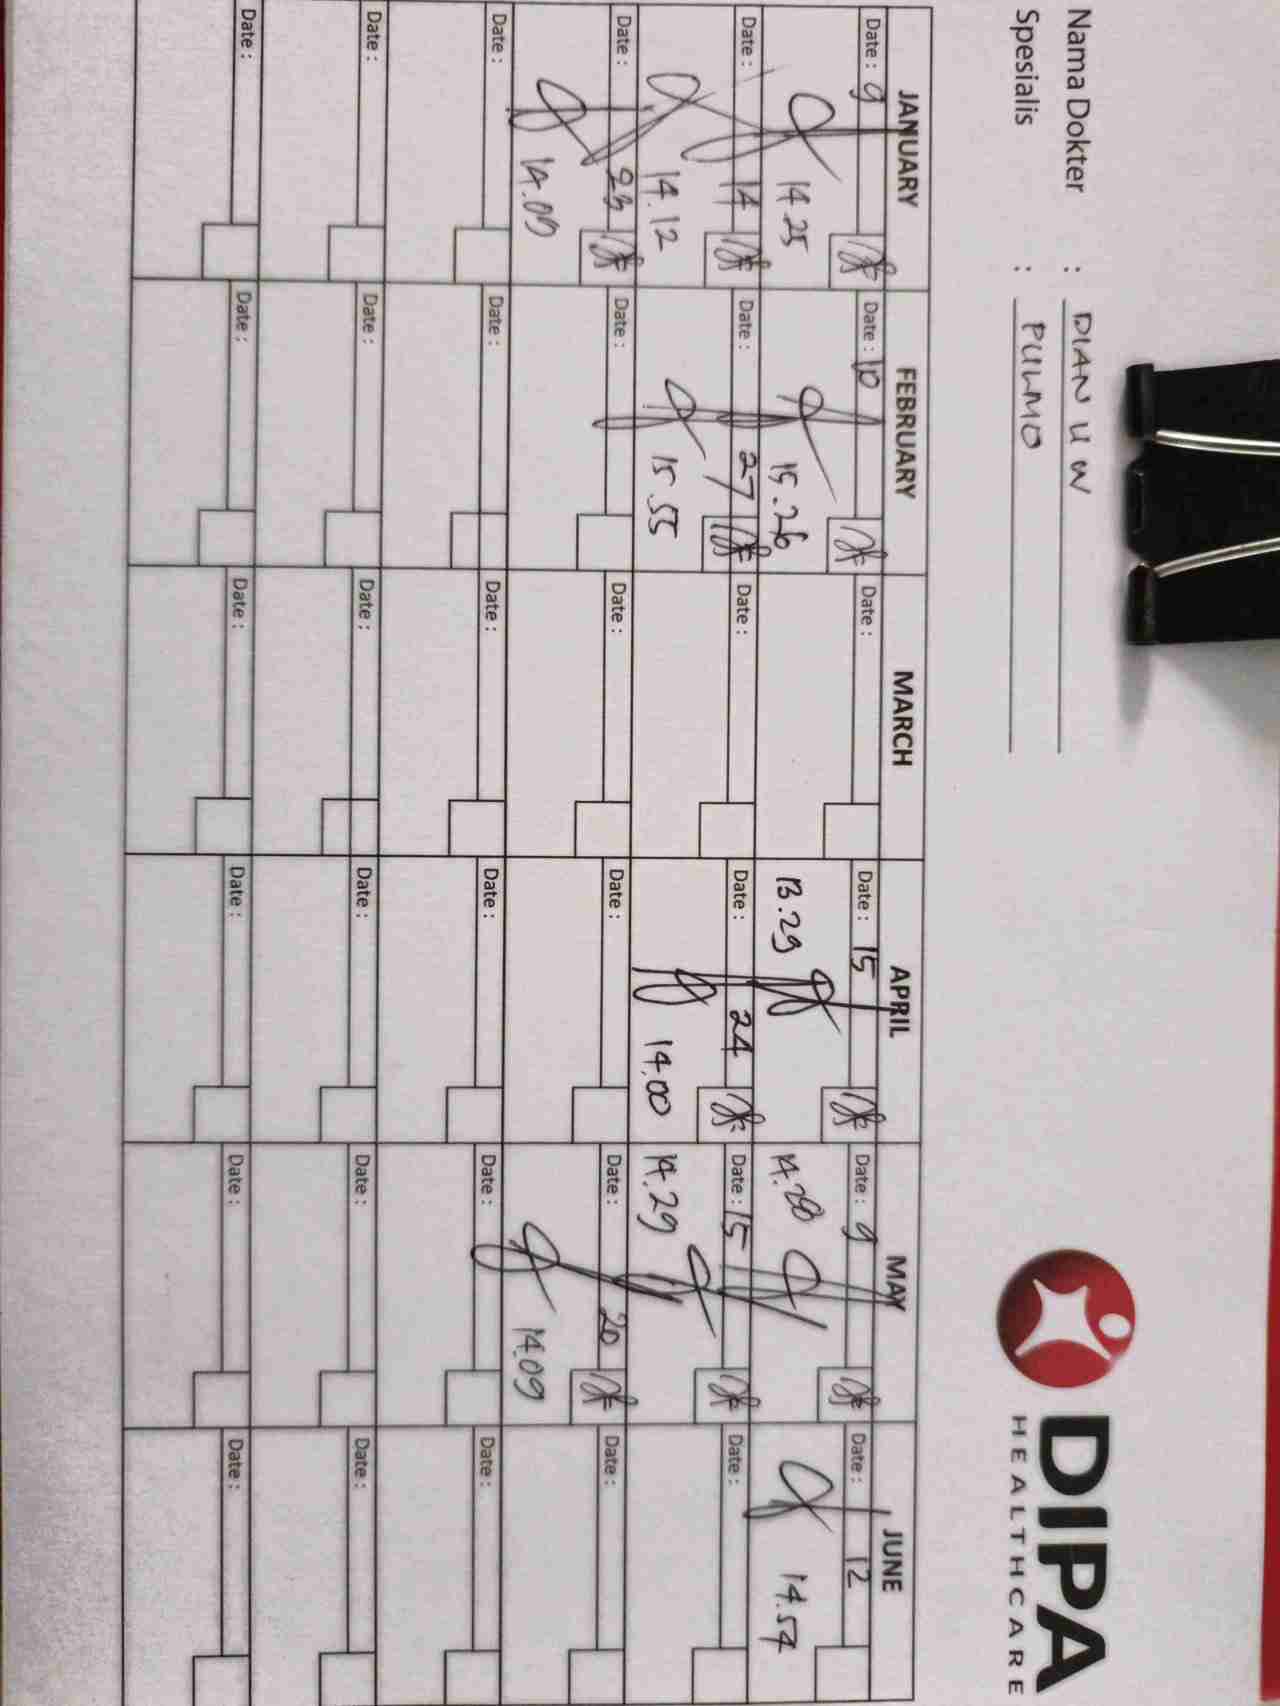 Nama Dokter : DIAN U W
Spesialis : PULMO
DIPA
HEALTHCARE
JANUARY FEBRUARY MARCH APRIL MAY JUNE
Date : 9 Date : 10 Date : Date : 15 Date : 9 Date : 12
14.25 15.26 13.29 14.28 14.54
Date : 14 Date : 27 Date : Date : 24 Date : 15 Date :
14.12 15.55 14.00 14.29
Date : Date : Date : Date : Date : 20 Date :
14.09 14.09
Date : Date : Date : Date : Date : Date :
Date : Date : Date : Date : Date : Date :
Date : Date : Date : Date : Date : Date :